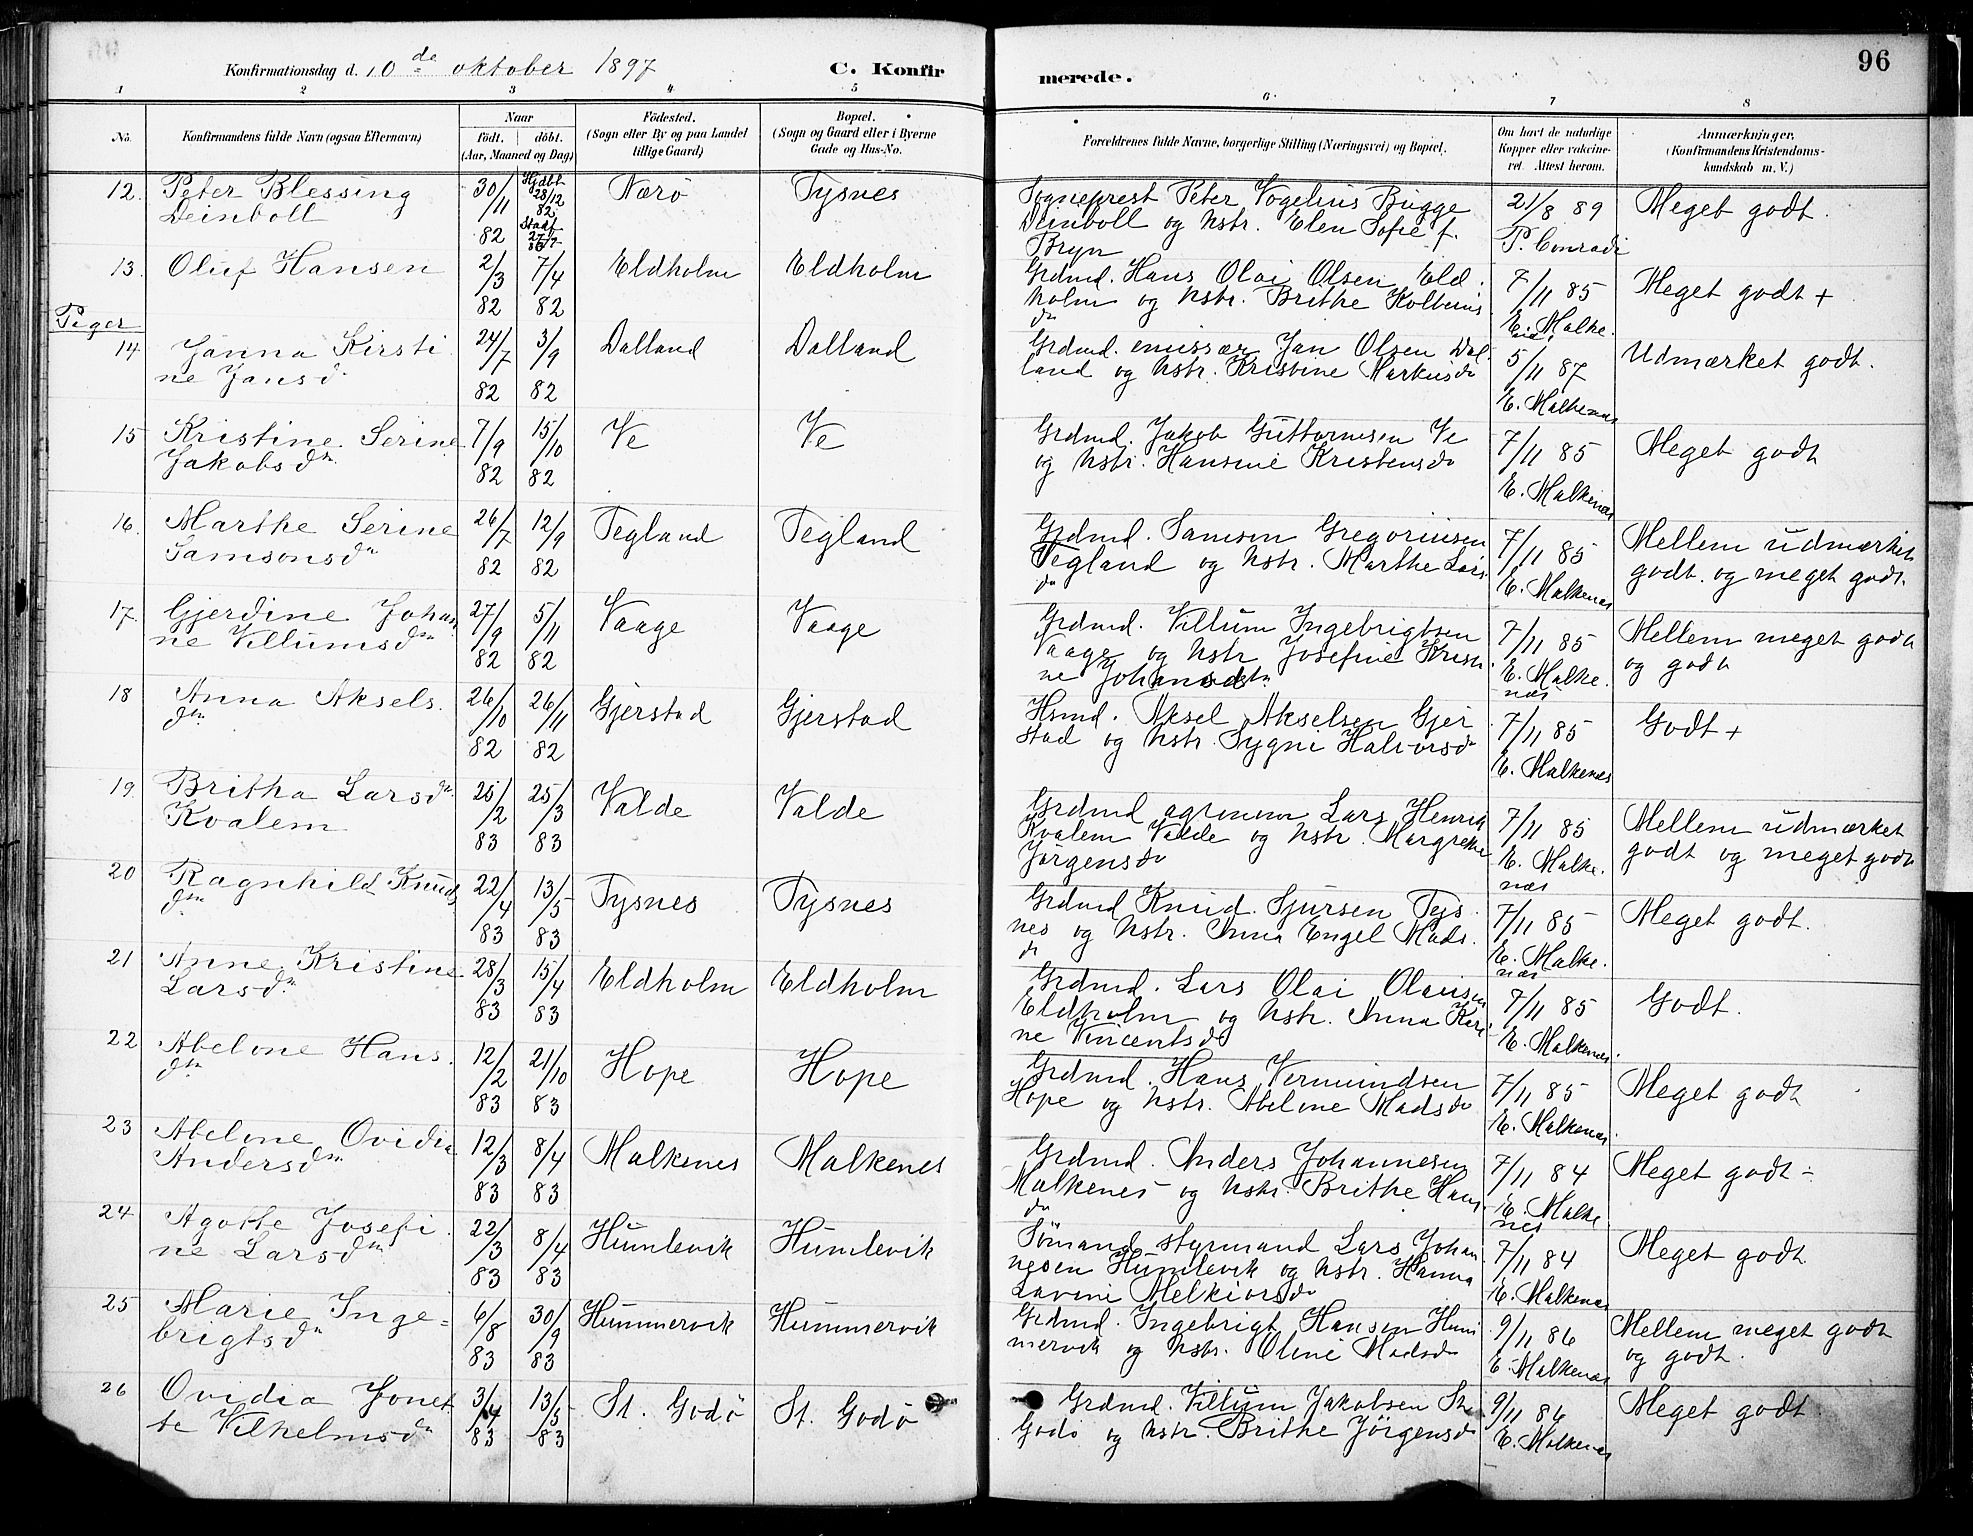 96
Konfirmationsdag d. 10de oktober 1897 C. Konfirmerede.
1 2 3 4 5 6 7 8
No. Konfirmandens fulde Navn (ogsaa Efternavn) Naar født. døbt. (Aar, Maaned og Dag) Fødested. (Sogn eller By og paa Landet tillige Gaard) Bopæl. (Sogn og Gaard eller i Byerne Gade og Hus-No. Forældrenes fulde Navne, borgerlige Stilling (Næringsvei) og Bopæl. Om havt de naturlige Kopper eller vakcineret. Attest herom. Anmærkninger, (Konfirmandens Kristendomskundskab m. V.)
12. Peter Blessing Deinboll 30/11 82 Hjdbt 28/12 82 Nærø Tysnes Sogneprest Peter Vogelius Bugge Deinboll og hstr. Elen Sofie f. Bryn 21/8 89 P. Conradi Meget godt.
13. Oluf Hansen 2/3 82 7/4 82 Eldholm Eldholm Grdmd. Hans Olai Olsen Eldholm og hstr. Brithe Kolbeinsdr 7/11 85 E. Malkenæs Meget godt +
Piger
14. Janna Kirstine Jansd. 24/7 82 3/9 82 Dalland Dalland Grdmd. emissær Jan Olsen Dalland og hstr. Kristine Markusdr 5/11 87 E. Malkenæs Udmærket godt.
15 Kristine Serine Jakobsdr. 7/9 82 15/10 82 Ve Ve Grdmd. Jakob Guttormsen Ve og hstr. Hansine Kristensdr 7/11 85 E. Malkenæs Meget godt
16. Marthe Serine Samsonsdr 26/7 82 12/9 82 Tegland Tegland Grdmd. Samson Gregoriusen Tegland og hstr. Marthe Larsdr 7/11 85 E. Malkenæs Mellem udmærket godt. og meget godt.
17. Gjerdine Johanne Villumsdtr 27/9 82 5/11 82 Vaage Vaage Grdmd. Villum Ingebrigtsen Vaage og hstr Josefine Kristine Johansdtr 7/11 85 E. Malkenæs Mellem meget godt og godt
18 Anna Akselsdtr 26/10 82 26/11 82 Gjerstad Gjerstad Hsmd. Aksel Akselsen Gjerstad og hstr. Sygni Halvorsdr 7/11 85 E. Malkenæs Godt +
19. Britha Larsdr. Kvalem 25/2 83 25/3 83 Valde Valde Grdmd agronom Lars Henrik Kvalem Valde og hstr. Margrethe Jørgensdr 7/11 85 E. Malkenæs Mellem udmærket godt og meget godt
20 Ragnhild Knudsdtr 22/4 83 13/5 83 Tysnes Tysnes Grdmd Knud Sjursen Tysnes og hstr. Anna Engel Madsdr 7/11 85 E. Malkenæs Meget godt.
21 Anne Kristine Larsdr. 28/3 83 15/4 83 Eldholm Eldholm Grdmd. Lars Olai Olausen Eldholm og hstr. Anna Karine Vincentsdr 7/11 85 E. Malkenæs. Godt.
22 Abelone Hansdtr 12/2 83 21/10 83 Hope Hope Grdmd. Hans Vermundsen Hope og hstr. Abelone Madsdr 7/11 85 E. Malkenæs. Meget godt
23 Abelone Ovidia Andersdtr 12/3 83 8/4 83 Malkenes Malkenes Grdmd. Anders Johannesen Malkenes og hstr. Brithe Hansdr 7/11 84 E. Malkenes Meget godt ÷
24 Agotte Josefine Larsdtr 22/3 83 8/4 83 Humlevik Humlevik Sømand styrmand Lars Johannesen Humlevik og hstr. Hanna Lavine Melkiorsdr 7/11 84 E. Malkenæs Meget godt
25 Marie Ingebrigtsdr 6/8 83 30/9 83 Hummervik Hummervik Grdmd. Ingebrigt Hansen Hummervik og hstr. Oline Madsdr 9/11 86 E. Malkenæs Mellem meget godt og godt.
26 Ovidia Jonette Vilhelmsdr 3/4 83 13/5 83 St. Godø St. Godø Grdmd. Villum Jakobsen St. Godø og hstr. Brithe Jørgensdr 9/11 86 E. Malkenæs Meget godt.